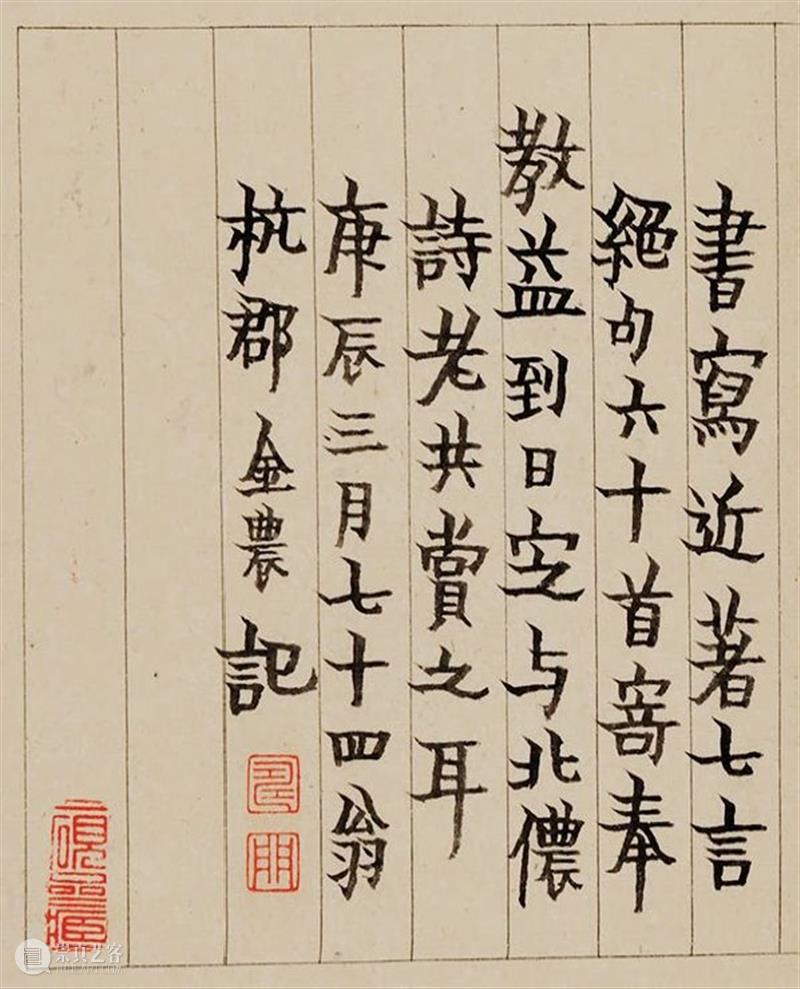 書寫近著七言
絕句六十首寄奉
教益到日㝎与北儂
詩老共賞之耳
庚辰三月七十四翁
杭郡金農記
崇真艺客